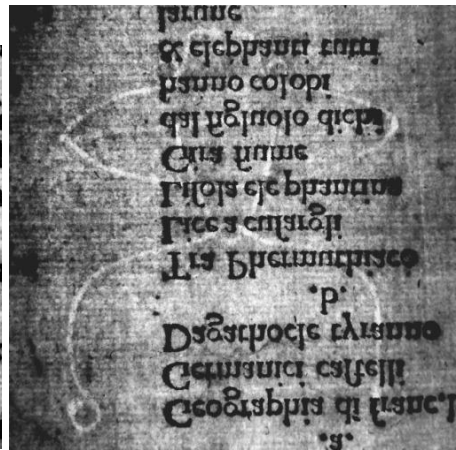 .a.
Geographia di franc.
Germanici caſtelli
Dagathocle tyranno
.b.
Tra Phermuthiaco
Lice a cuſargli
Liſola elephantina
Gira fiume
dal figluolo dichi
hanno colobi
& elephanti tutti
larune